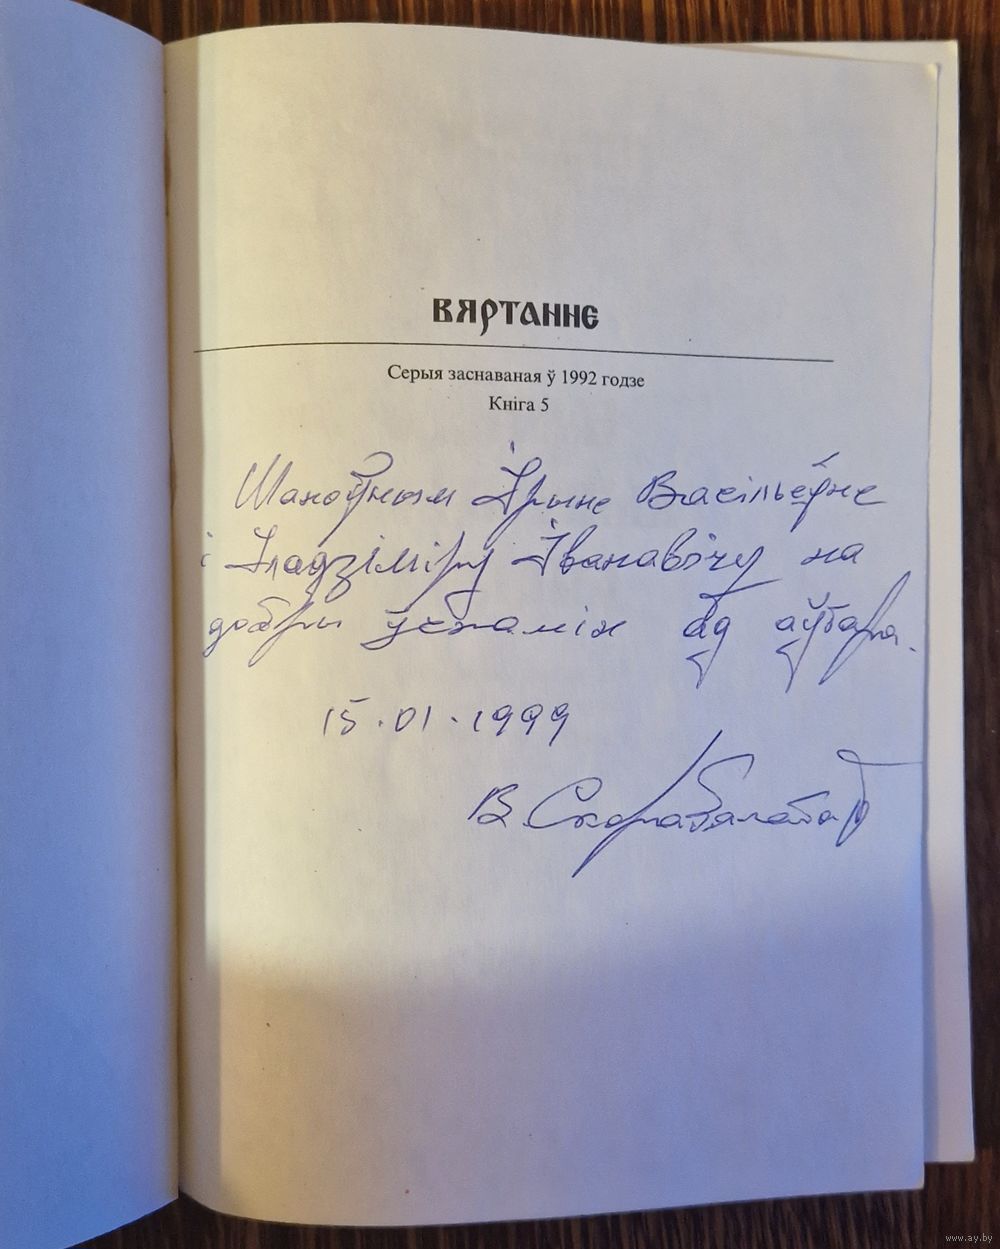 ВЯРТАННЕ
Серыя заснаваная ў 1992 годзе
Кніга 5
Шаноўным Ірыне Васільеўне
і Уладзіміру Іванавічу на
добры ўспамін ад аўтара.
15.01.1999
В. Скарабагатаў
www.ay.by